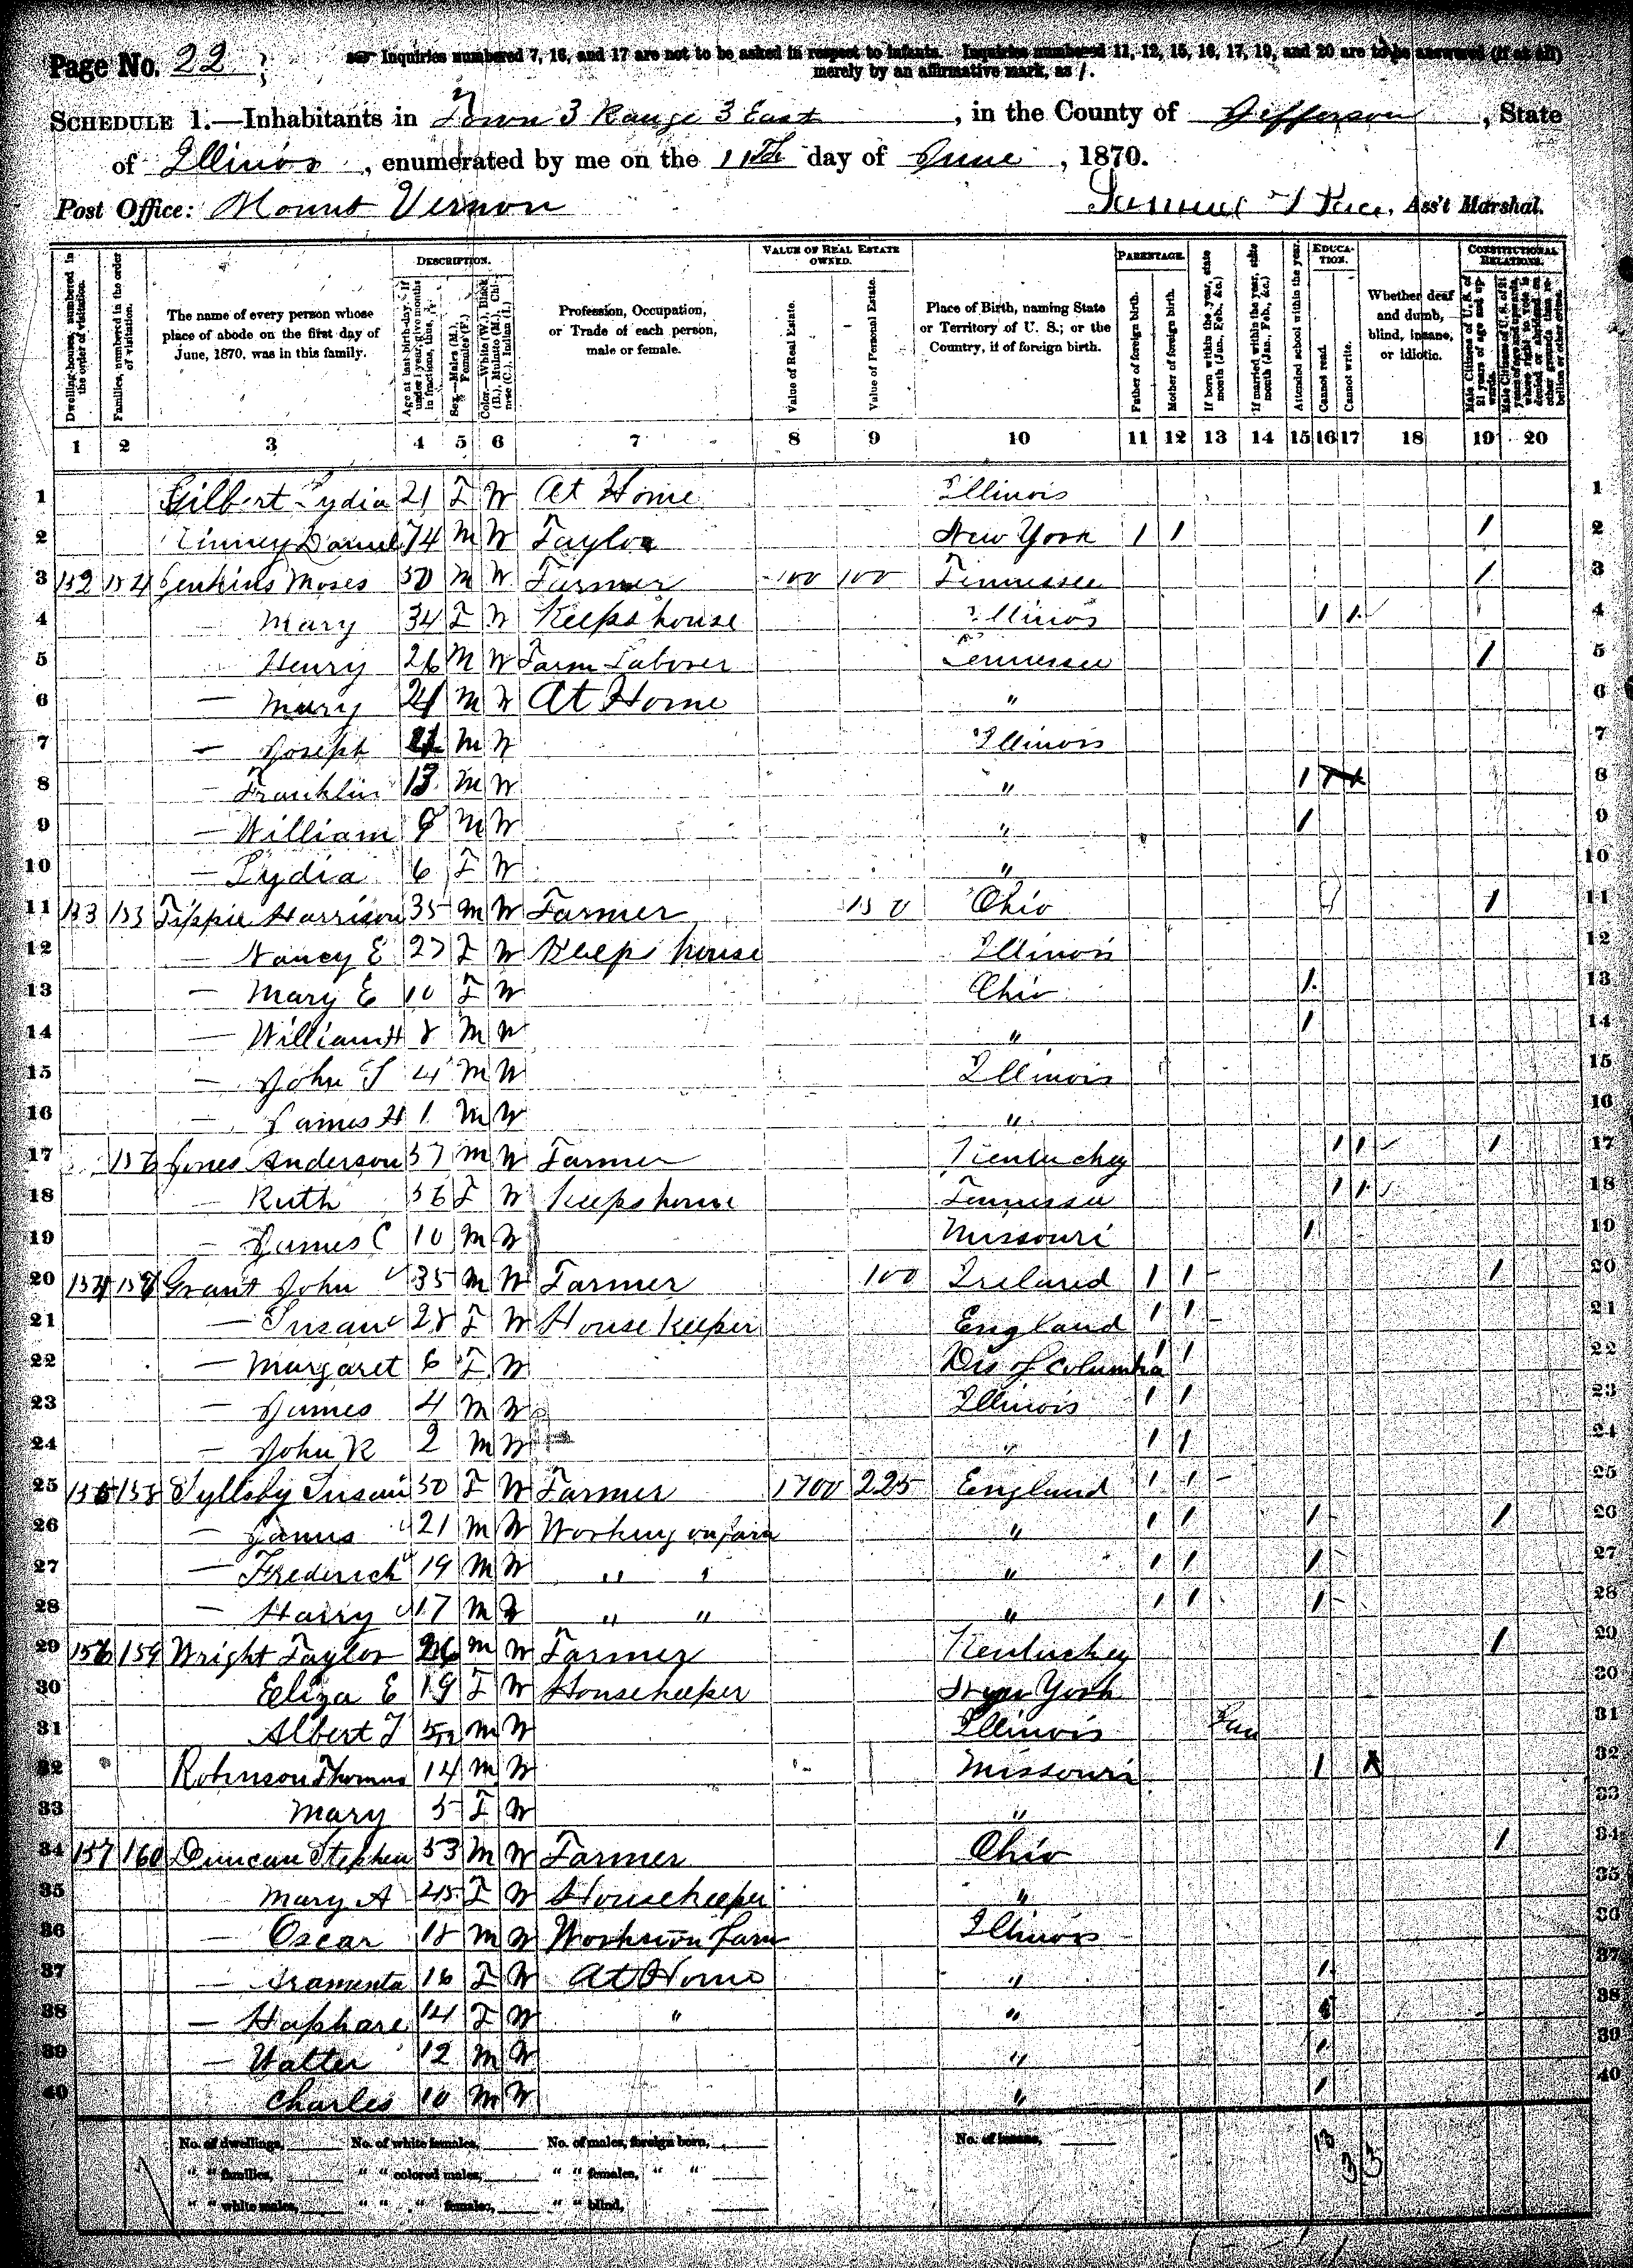 Page No. 22
Inquiries numbered 7, 16, and 17 are not to be asked in respect to infants. Inquiries numbered 11, 12, 15, 16, 17, 19, and 20 are to be answered (if at all)
merely by an affirmative mark, as /.
SCHEDULE 1.—Inhabitants in Town 3 Range 3 East, in the County of Jefferson, State
of Illinois, enumerated by me on the 11th day of June, 1870.
Post Office: Mount Vernon Samuel Ass't Marshal.
DESCRIPTION. VALUE OF REAL ESTATE OWNED. PARENTAGE. EDUCATION. CONSTITUTIONAL RELATIONS.
Dwelling-houses, numbered in the order of visitation.
Families, numbered in the order of visitation.
The name of every person whose place of abode on the first day of June, 1870, was in this family.
Age at last birth-day. If under 1 year, give months in fractions, thus,
Sex.—Males (M.), Females (F.)
Color.—White (W.), Black (B.), Mulatto (M.), Chinese (C.), Indian (I.)
Profession, Occupation, or Trade of each person, male or female.
Value of Real Estate.
Value of Personal Estate.
Place of Birth, naming State or Territory of U. S.; or the Country, if of foreign birth.
Father of foreign birth.
Mother of foreign birth.
If born within the year, state month (Jan., Feb., &c.)
If married within the year, state month (Jan., Feb., &c.)
Attended school within the year.
Cannot read.
Cannot write.
Whether deaf and dumb, blind, insane, or idiotic.
Male Citizens of U.S. of 21 years of age and upwards.
Male Citizens of U.S. of 21 years of age and upwards, whose right to vote is denied or abridged on other grounds than rebellion or other crime.
1 2 3 4 5 6 7 8 9 10 11 12 13 14 15 16 17 18 19 20
1 Gilbert Lydia 21 F W At Home Illinois 1
2 Daniel 74 M W Taylor New York / / / 2
3 152 154 Jenkins Moses 50 M W Farmer 100 100 Tennessee / 3
4 — Mary 34 F W Keeps house Illinois / / 4
5 Henry 26 M W Farm Laborer Tennessee / 5
6 — Mary 21 M W At Home " 6
7 — Joseph M W Illinois 7
8 — Franklin 13 M W " / 8
9 — William 9 M W " / 9
10 — Lydia 6 F W " 10
11 153 155 Tippie Harrison 35 M W Farmer 150 Ohio / 11
12 — Nancy E 27 F W Keeps house Illinois 12
13 — Mary E 10 F W Ohio / 13
14 — William H 8 M W " / 14
15 — John T 4 M W Illinois 15
16 — James H 1 M W " 16
17 156 Jones Anderson 57 M W Farmer Kentucky / / / 17
18 — Ruth 56 F W Keeps house Tennessee / / 18
19 — James C 10 M W Missouri / 19
20 154 157 Grant John 35 M W Farmer 100 Ireland / / / 20
21 — Susan 28 F W House Keeper England / / 21
22 — Margaret 6 F W Dis of Columbia / / 22
23 — James 4 M W Illinois / / 23
24 — John R 2 M W " / / 24
25 155 158 Syllsby Susan 50 F W Farmer 1700 225 England / / 25
26 — James 21 M W Working on farm " / / / / 26
27 — Frederick 19 M W " " " / / / 27
28 — Harry 17 M W " " " / / / 28
29 156 159 Wright Taylor 26 M W Farmer Kentucky / 29
30 Eliza E 19 F W Housekeeper New York 30
31 Albert T 5/12 M W Illinois Jan 31
32 Robinson Thomas 14 M W Missouri / 32
33 Mary 5 F W " 33
34 157 160 Duncan Stephen 53 M W Farmer Ohio / 34
35 Mary A 45 F W Housekeeper " 35
36 — Oscar 18 M W Works on farm Illinois 36
37 — 16 F W At Home " / 37
38 — 14 F W " " / 38
39 — Walter 12 M W " / 39
40 Charles 10 M W " / 40
No. of dwellings, No. of white females, No. of males, foreign born, No. of insane, 13
" " families, " " colored males, " " females, " " 3 3
" " white males, " " " females, " " blind,